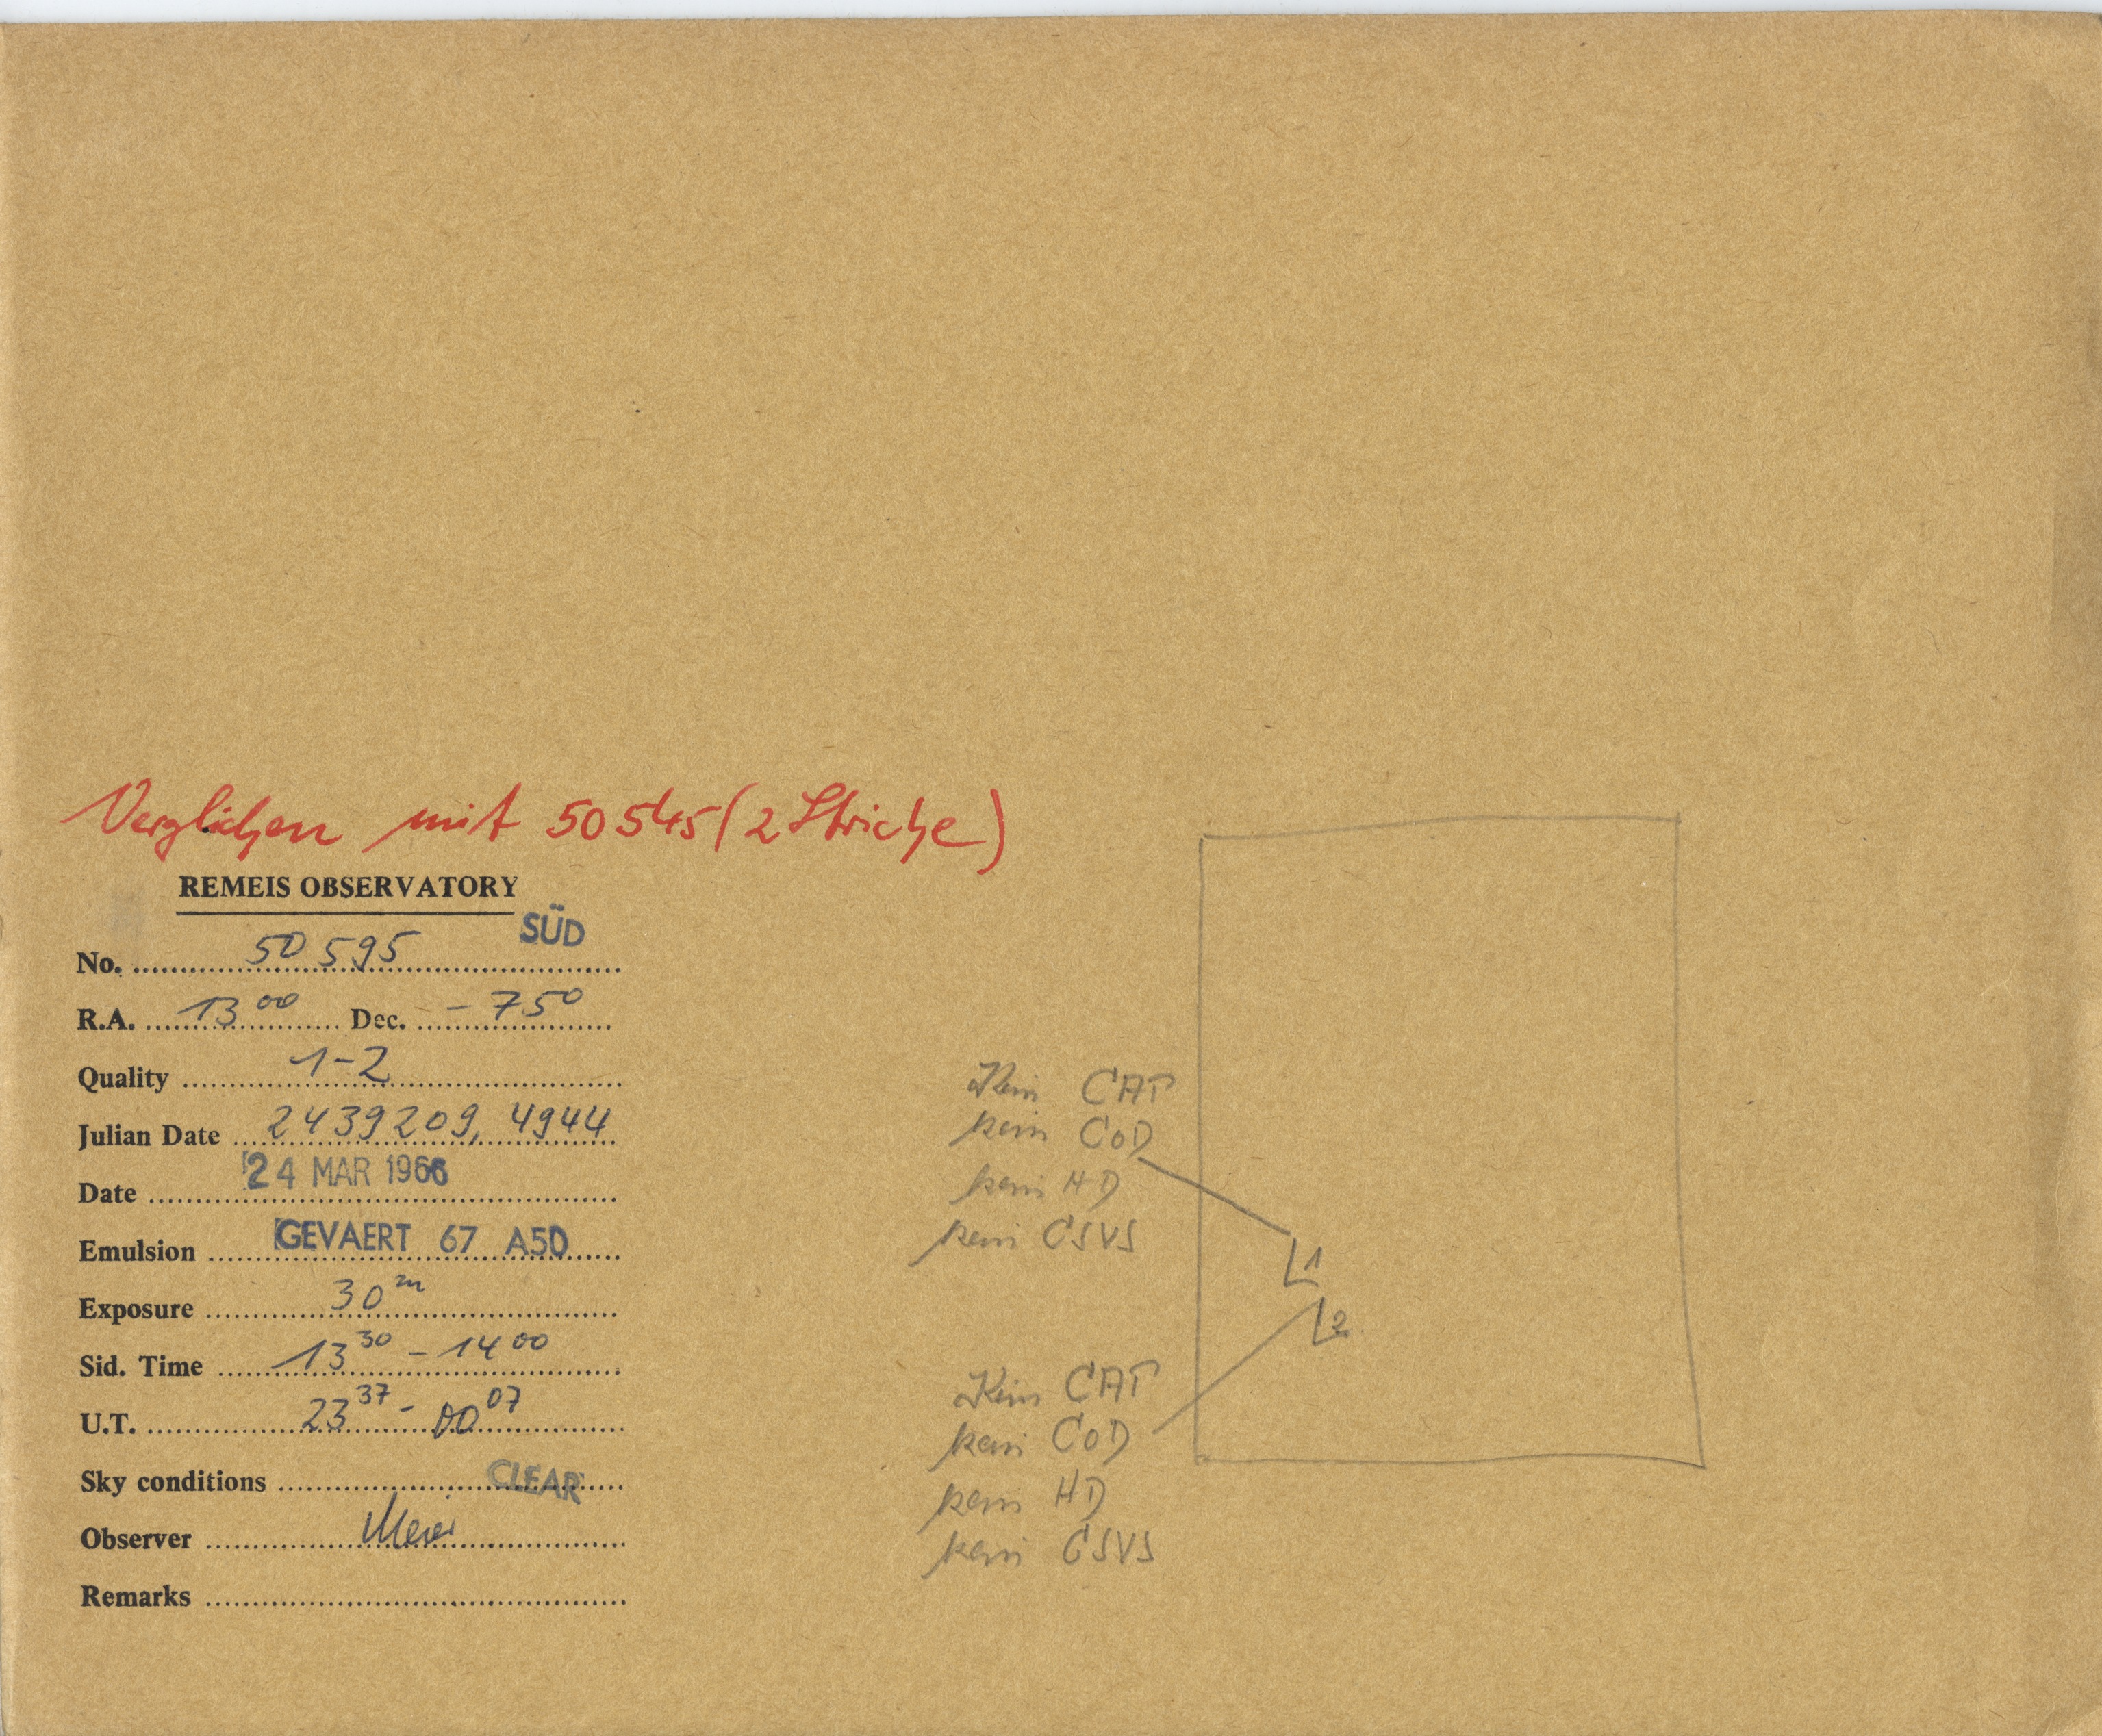 Verglichen mit 50545 (2 Striche)
REMEIS OBSERVATORY
SÜD
No. 50 595
R.A. 13 00 Dec. - 75°
Quality 1-2
Julian Date 2439209, 4944
Date 24 MAR 1966
Emulsion GEVAERT 67 A50
Exposure 30 m
Sid. Time 13 30 - 14 00
U.T. 23 37 - 00 07
Sky conditions CLEAR
Observer
Remarks
Kein CAP
kein CoD
kein HD
kein CSVS
1
2
Kein CAP
kein CoD
kein HD
kein CSVS